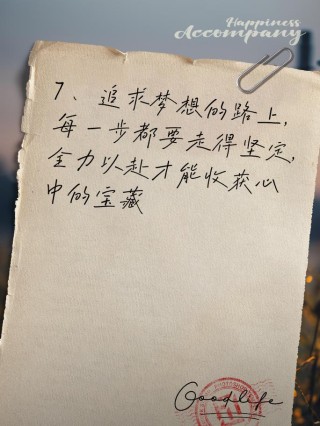 Happiness
Accompany
7、追求梦想的路上,
每一步都要走得坚定,
全力以赴才能收获心
中的宝藏
Goodlife